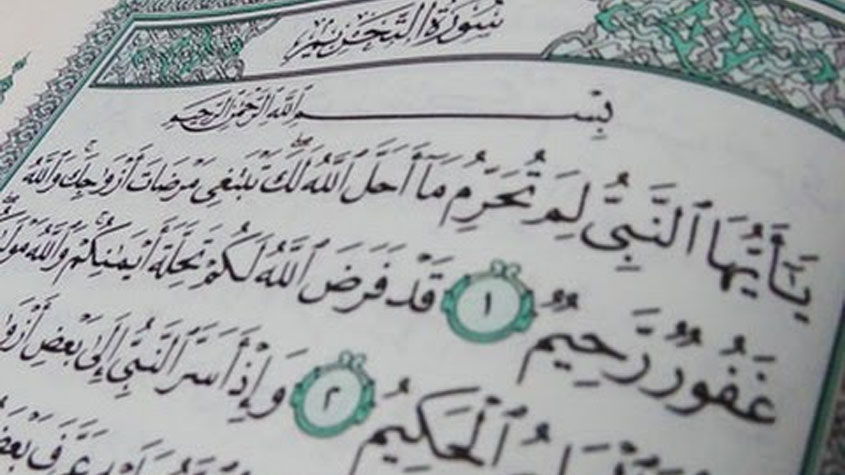 سُورَةُ التَّحْرِيمِ
بِسْمِ ٱللَّهِ ٱلرَّحْمَٰنِ ٱلرَّحِيمِ
يَٰٓأَيُّهَا ٱلنَّبِىُّ لِمَ تُحَرِّمُ مَآ أَحَلَّ ٱللَّهُ لَكَ ۖ تَبْتَغِى مَرْضَاتَ أَزْوَٰجِكَ ۚ وَٱللَّهُ
غَفُورٌ رَّحِيمٌ ١ قَدْ فَرَضَ ٱللَّهُ لَكُمْ تَحِلَّةَ أَيْمَٰنِكُمْ ۚ وَٱللَّهُ
ٱلْحَكِيمُ ٢ وَإِذْ أَسَرَّ ٱلنَّبِىُّ إِلَىٰ بَعْضِ
عَرَّفَ